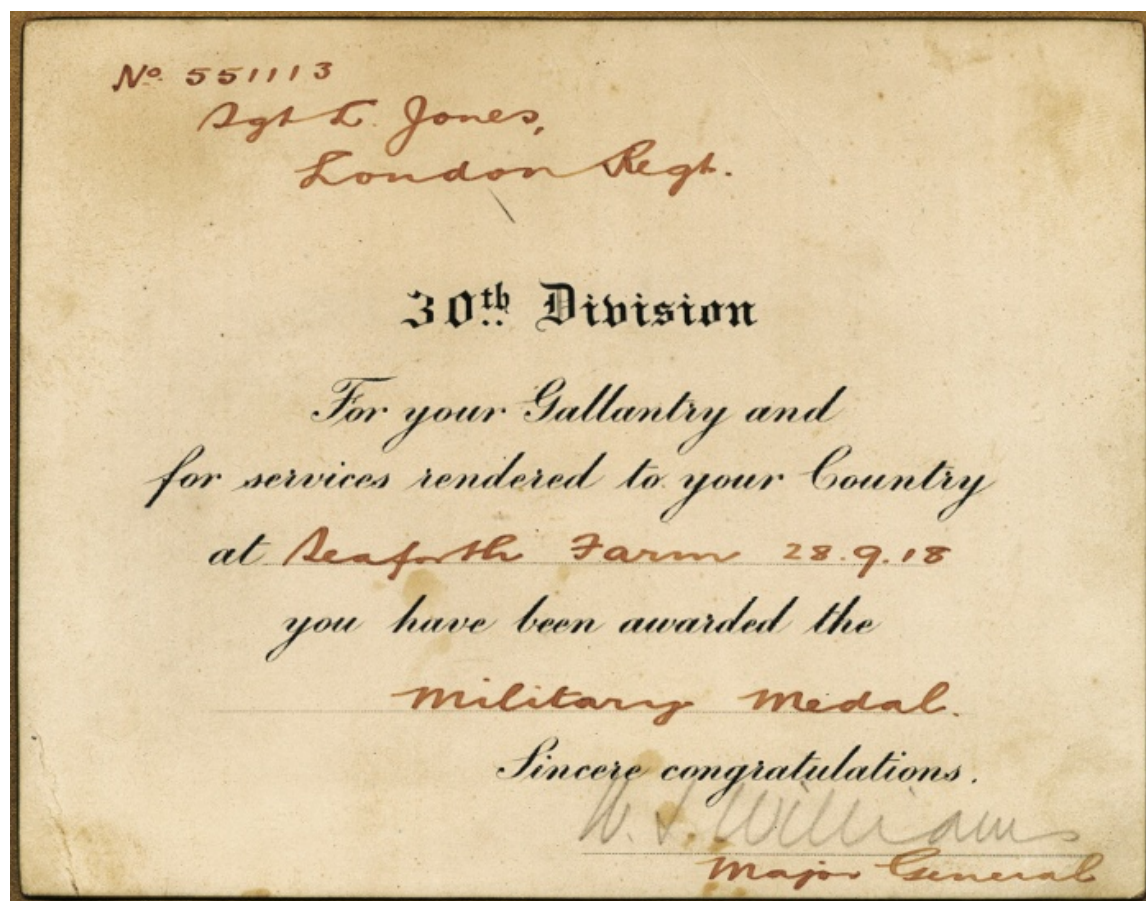 No. 551113
Sgt L. Jones,
London Regt.
30th Division
For your Gallantry and
for services rendered to your Country
at Seaforth Farm 28.9.18
you have been awarded the
Military Medal.
Sincere congratulations.
W. L. Williams
Major General